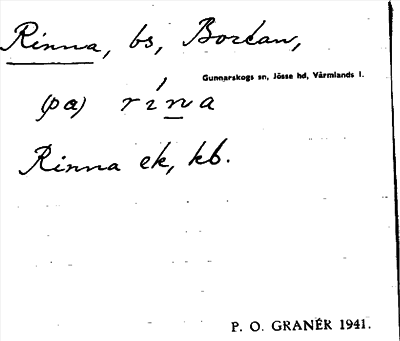 Rinna, bs, Bortan,
Gunnarskogs sn, Jösse hd, Värmlands l.
(pa) rína
Rinna ek, kb.
P. O. GRANÉR 1941.